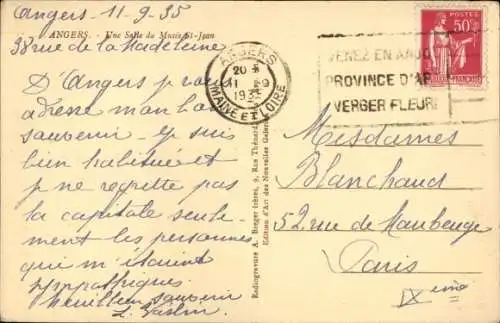 Angers 11-9-35
ANGERS. - Une Salle du Musée St-Jean
38 rue de la Madeleine
D'Angers je vous
adresse mon bon
souvenir - Je suis
bien habituée et
je ne regrette pas
la capitale seule-
ment les personnes
qui m'étaient
sympathiques.
Meilleur souvenir
ANGERS
20
11-9
1935
MAINE ET LOIRE
VENEZ EN ANJOU
PROVINCE D'AR
VERGER FLEURI
POSTES
50c
Radiogravure A. Breger frères, 9, Rue Thénard
Edition d'Art des Nouvelles Galeries
Mesdames
Blanchaud
52 rue de Maubeuge
Paris
IXème